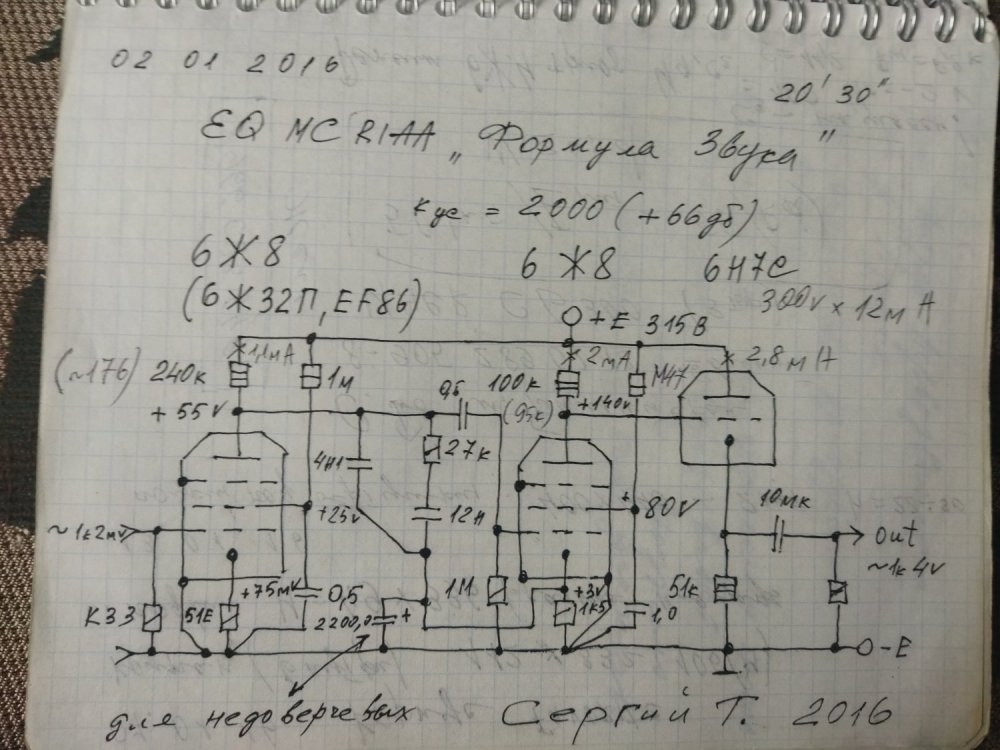 02 01 2016
20' 30"
EQ MC RIAA „Формула Звука"
Кус = 2000 (+66дб)
6Ж8 6Ж8 6Н7С
(6Ж32П, EF86) 300v x 12мА
+E 315В
1,1мА 2мА 2,8мА
(~176) 240к 1м 0,5 100к М47
+55v (95к) +140v
27к
4Н1
+25v 12Н 80V 10мк
~1к2mv out
~1к4v
К33 51Е +75мV 0,5 1М +3v 1к5 51к
2200,0 + 1,0
-E
для недоверчевых Сергий Т. 2016